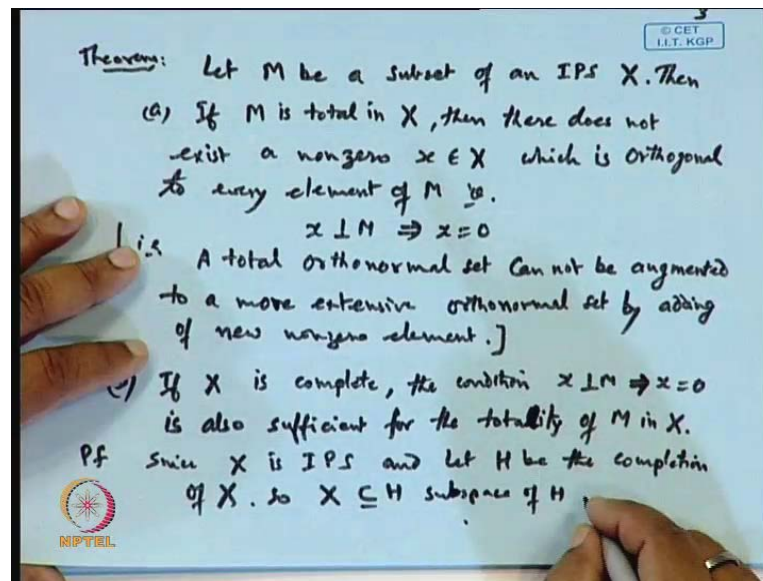 3
© CET
I.I.T. KGP
Theorem: Let M be a subset of an IPS X. Then
(a) If M is total in X, then there does not
exist a nonzero x ∈ X which is orthogonal
to every element of M ie.
x ⊥ M ⇒ x = 0
[ ie A total orthonormal set can not be augmented
to a more extensive orthonormal set by adding
of new nonzero element.]
If X is complete, the condition x ⊥ M ⇒ x = 0
is also sufficient for the totality of M in X.
Pf Since X is IPS and let H be the completion
of X. So X ⊆ H subspace of H
NPTEL